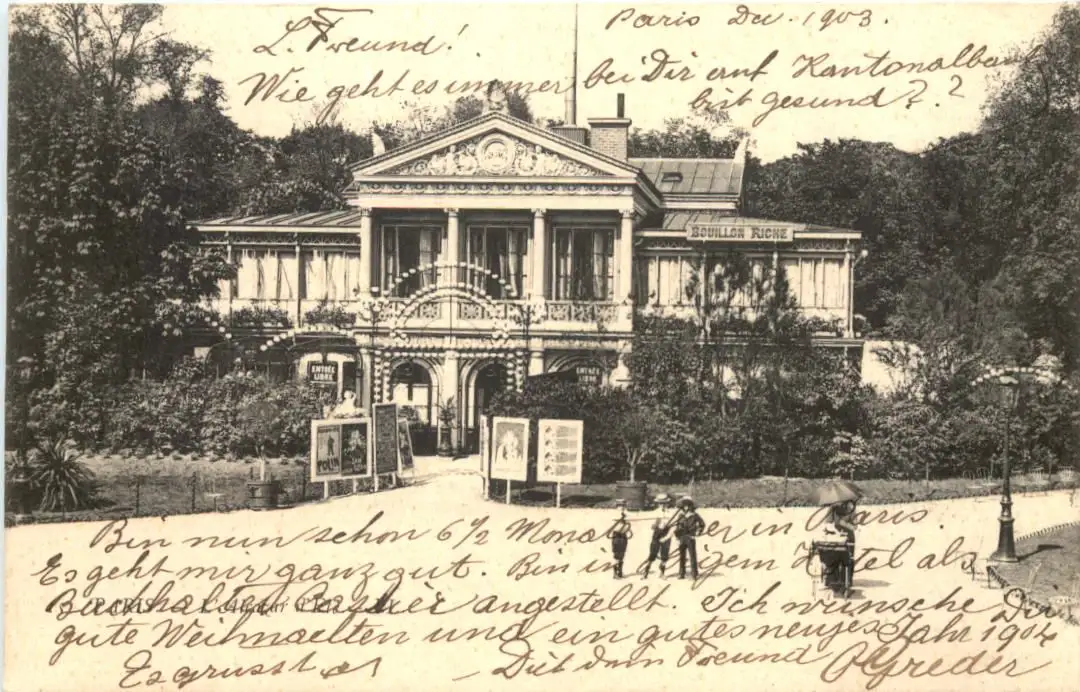 Paris Dez. 1903.
L. Freund!
Wie geht es immer bei Dir auf Kantonalbank
bist gesund??
BOUILLON RICHE
ENTRÉE LIBRE
ENTRÉE LIBRE
POLIN
Bin nun schon 6½ Monate hier in Paris.
Es geht mir ganz gut. Bin in Hotel als
Buchhalter angestellt. Ich wünsche Dir
PARIS
gute Weihnachten und ein gutes neues Jahr 1904
Es grüsst Dich dein Freund